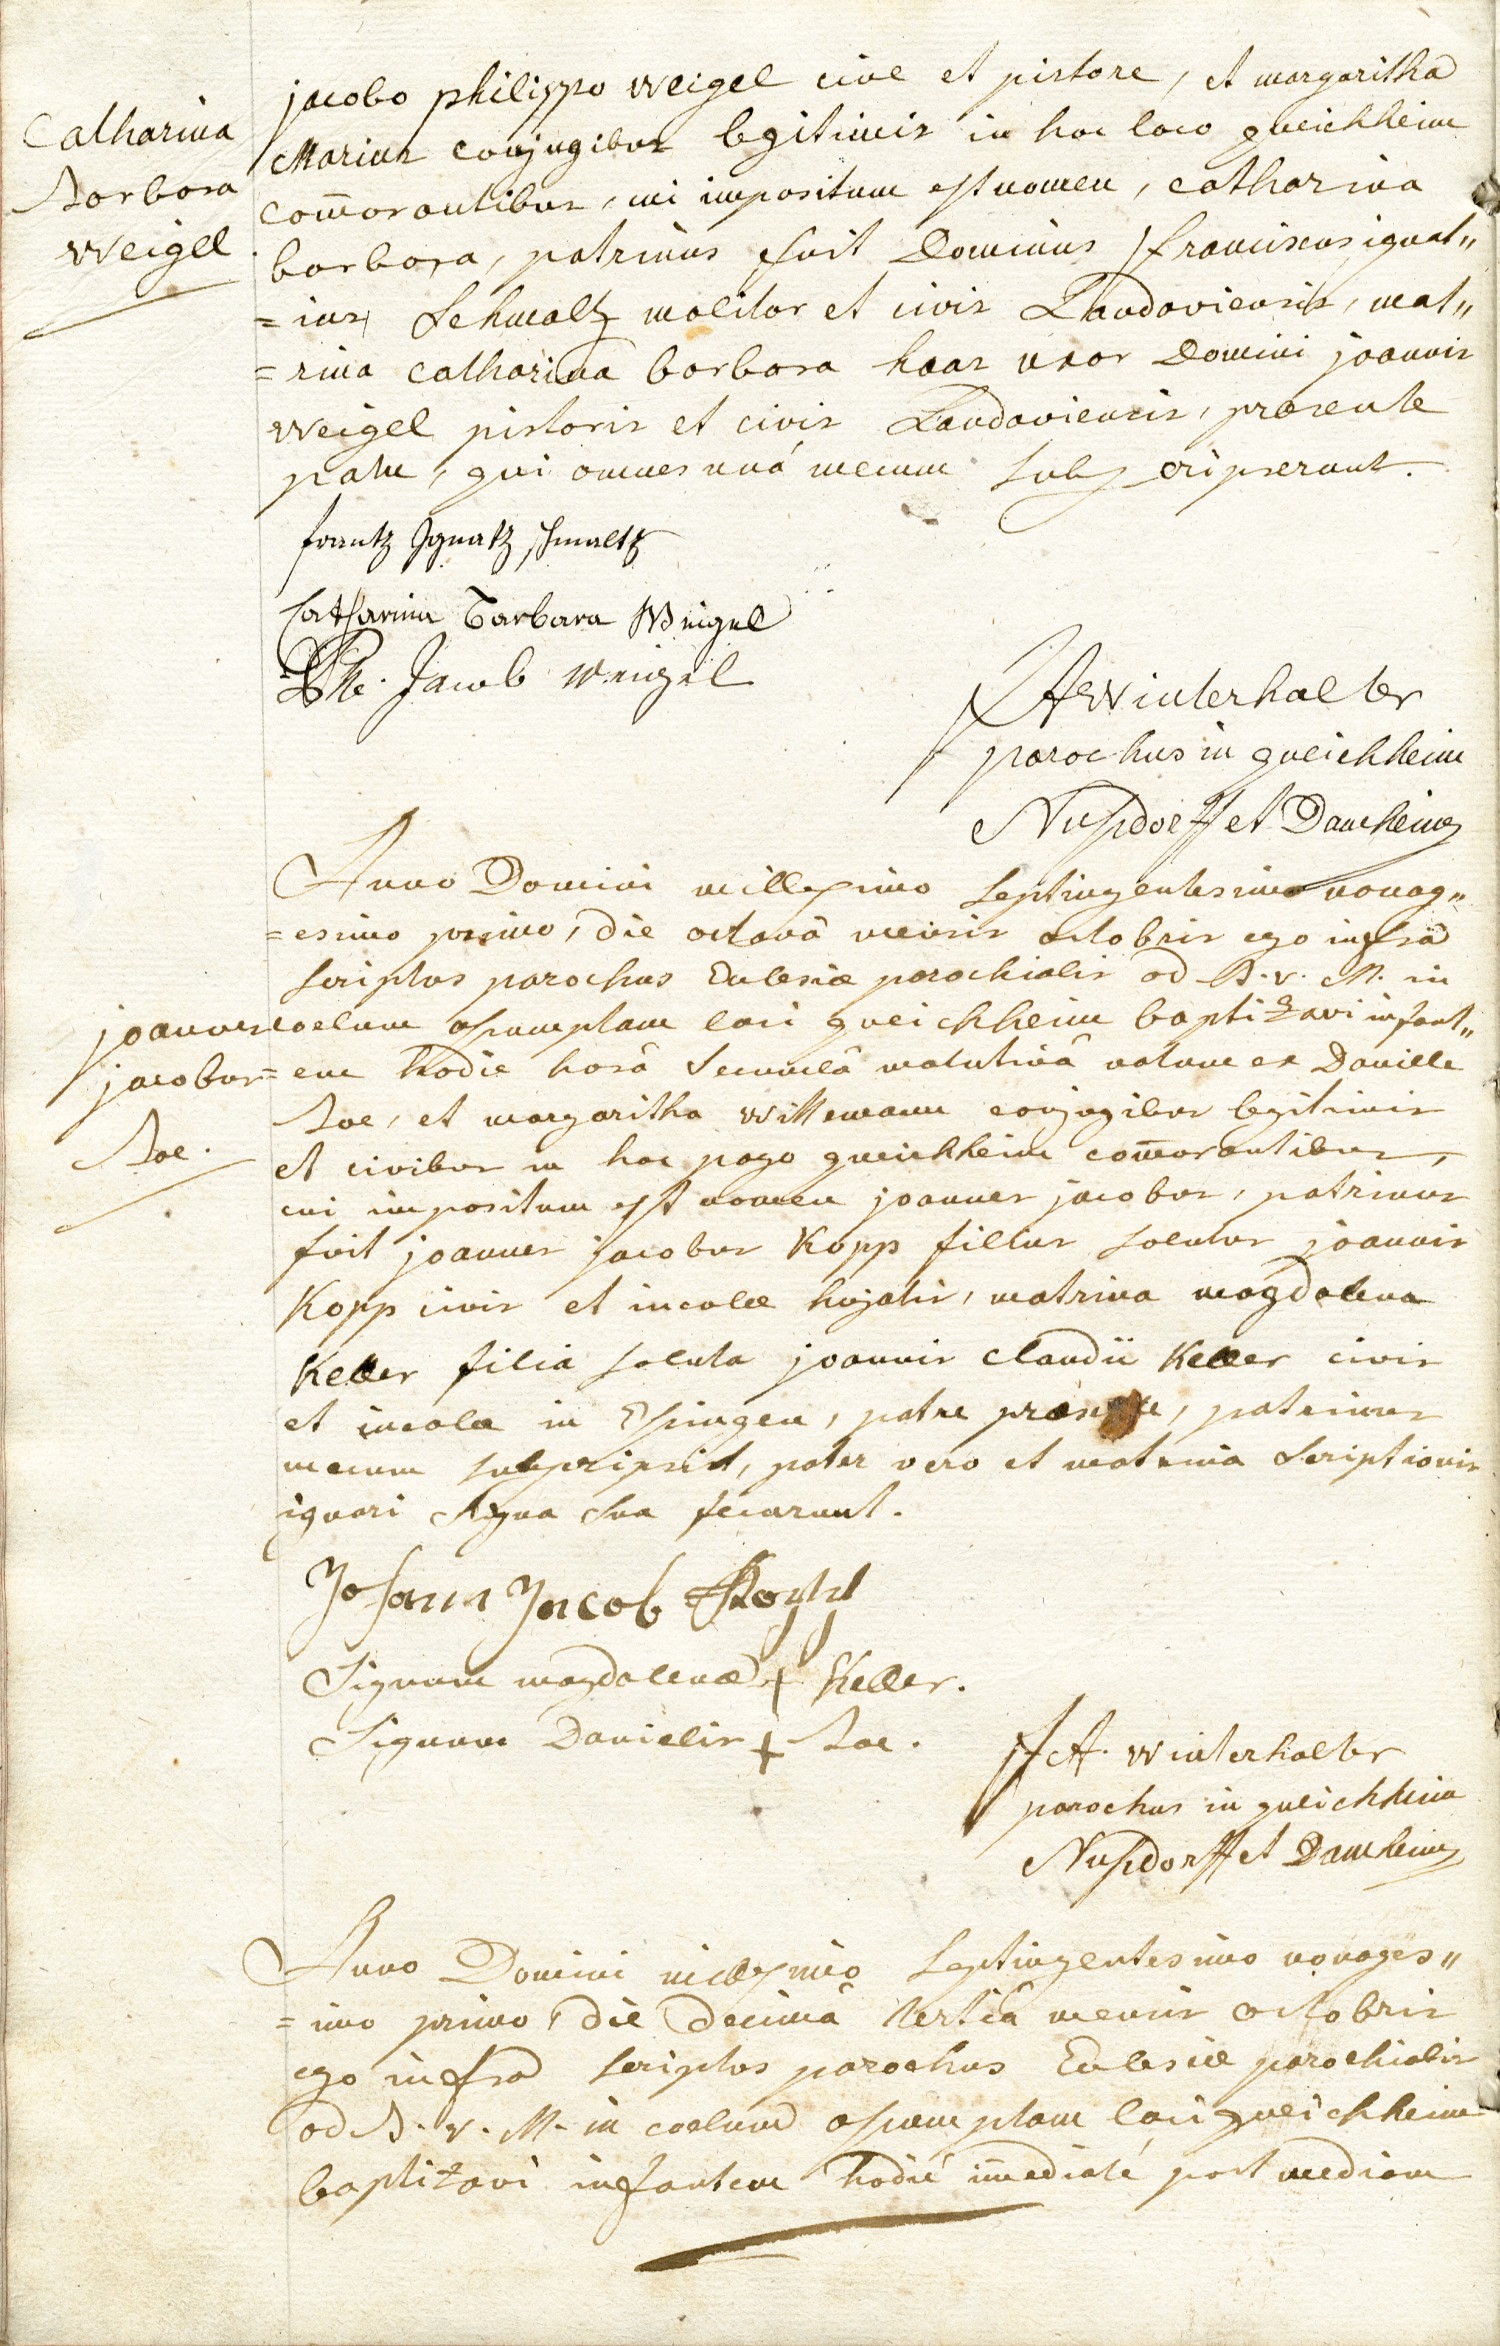 jacobo philippo weigel cive et pistore, et margaritha
Catharina
Marinz conjugibus legitimis in hoc loco queichheim
Barbara
com̄orantibus, cui impositum est nomen, catharina
weigel.
barbara, patrinus fuit Dominus franciscus ignat„
=ius Schmaltz molitor et civis Landaviensis, mat„
=rina catharina barbara haas uxor Domini joannis
weigel pistoris et civis Landaviensis, præsente
patre, qui omnes unà mecum subscripserunt.
frantz Ignatz schmaltz
Catharina Barbara Weigel
Ph. Jacob Weigel
JA winterhalter
parochus in queichheim
Nusdorff et Damheim
Anno Domini millesimo septingentesimo nonag„
=esimo primo, die octavâ mensis octobris ego infra
scriptus parochus Eclesiæ parochialis ad B. v. M. in
joannes
coelum assumptam loci queichheim baptizavi infant„
jacobus
=em hodie horâ secundâ matutinâ natum ex Daniele
Boe, et margaritha willemann conjugibus legitimis
Boe.
et civibus in hoc pago queichheim com̄orantibus,
cui impositum est nomen joannes jacobus, patrinus
fuit joannes jacobus Kopp filius solutus joannis
Kopp civis et incolæ hujatis, matrina magdalena
Keller filia soluta joannis claudii Keller civis
et incolæ in Essingen, patre præsente, patrinus
mecum subscripsit, pater vero et matrina scriptionis
ignari signa sua fecerunt.
Johann Jacob Kopp
Signum magdalenæ + Keller.
Signum Danielis + Boe.
JA. winterhalter
parochus in queichheim
Nusdorff et Damheim
Anno Domini millesimo septingentesimo nonages„
=imo primo, die decimâ tertiâ mensis octobris
ego infra scriptus parochus Eclesiæ parochialis
ad B. v. M. in coelum assumptam loci queichheim
baptizavi infantem hodié im̄ediaté post mediam